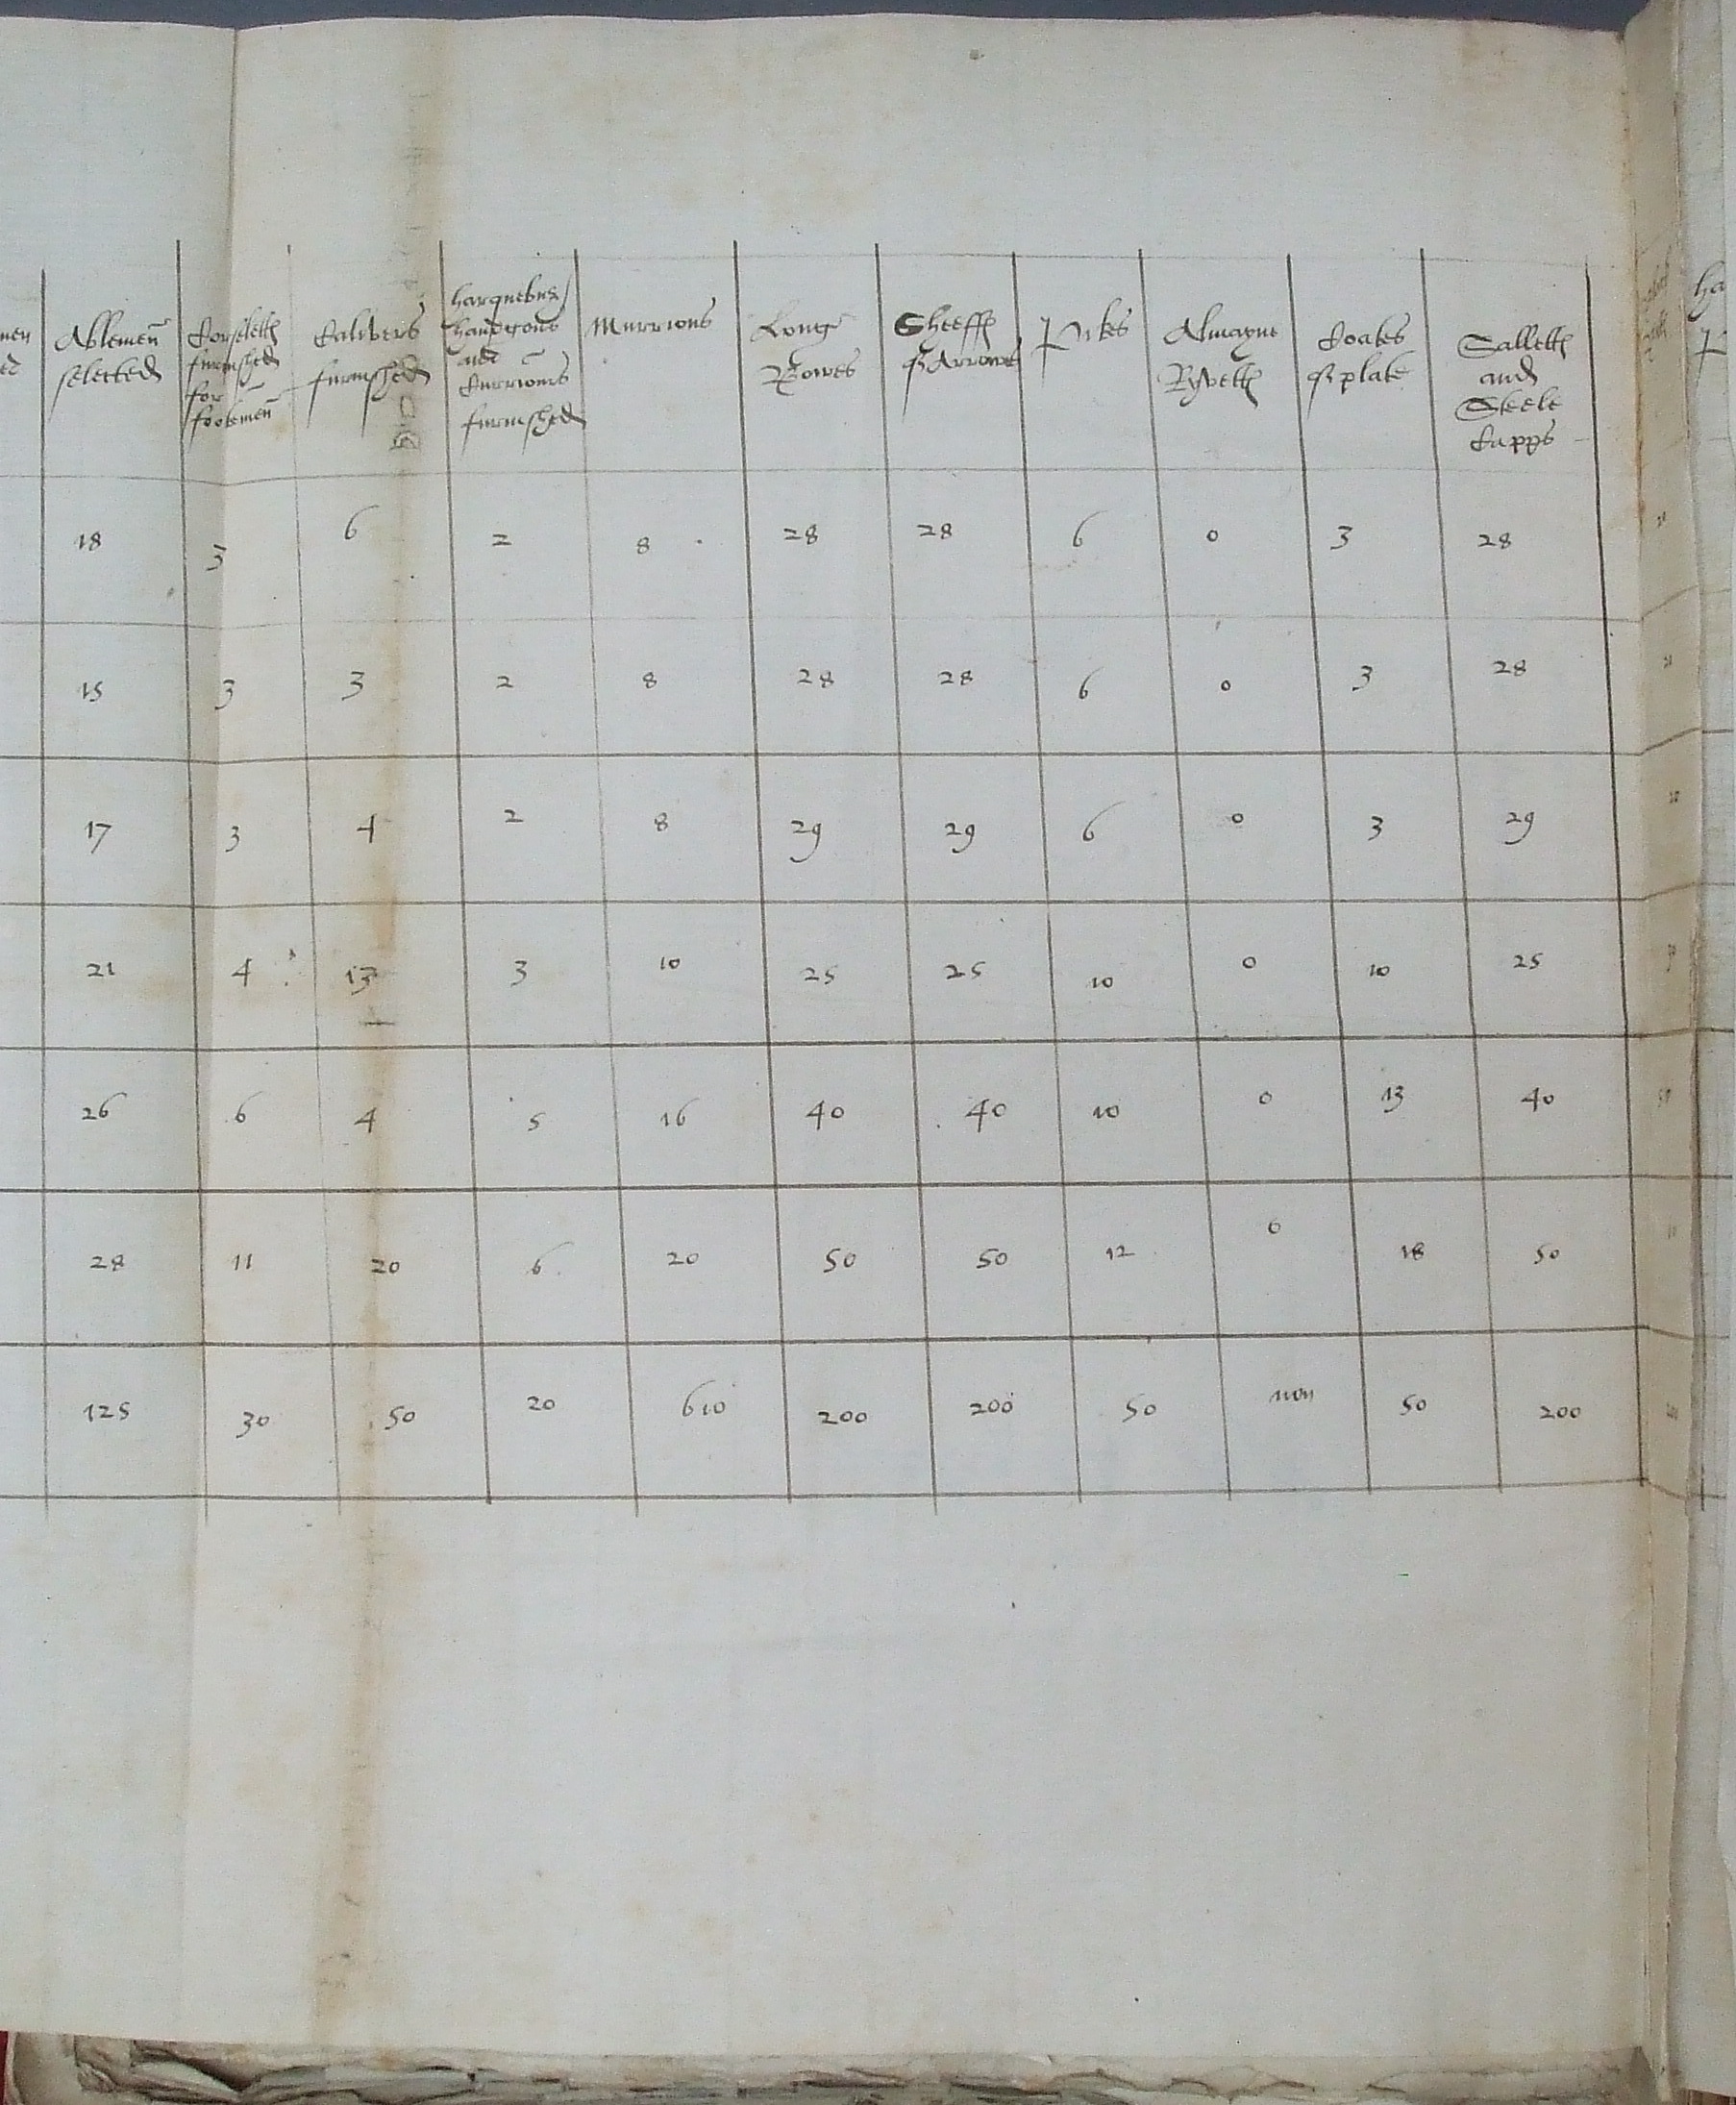 Ablemen selected | Corseletts furnished for footemen | Calivers furnished | harquebus handgons and Currions furnished | Murrions | Longe Bowes | Sheeffs of Arrowes | Pikes | Almayne Ryvetts | Coates of plate | Salletts and Steele Capps
18 | 3 | 6 | 2 | 8 | 28 | 28 | 6 | 0 | 3 | 28
15 | 3 | 3 | 2 | 8 | 28 | 28 | 6 | 0 | 3 | 28
17 | 3 | 4 | 2 | 8 | 29 | 29 | 6 | 0 | 3 | 29
21 | 4 | 13 | 3 | 10 | 25 | 25 | 10 | 0 | 10 | 25
26 | 6 | 4 | 5 | 16 | 40 | 40 | 10 | 0 | 13 | 40
28 | 11 | 20 | 6 | 20 | 50 | 50 | 12 | 0 | 18 | 50
125 | 30 | 50 | 20 | 610 | 200 | 200 | 50 | non | 50 | 200